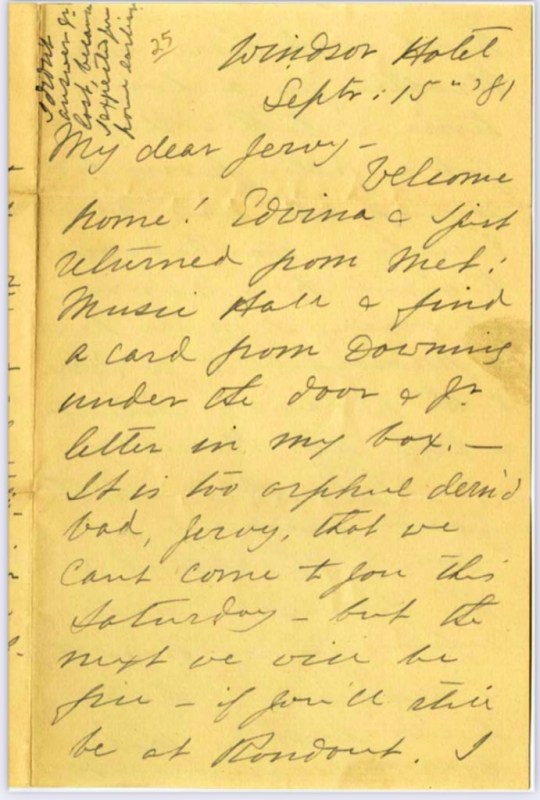 I didn't
answer yr.
last, because
I expected you
home earlier
25
Windsor Hotel
Septr: 15" '81
My dear Jervy -
Velcome
home! Edwina & I just
returned from Met:
Music Hall & find
a card from Downing
under the door & yr
letter in my box. -
It is too orphul dern'd
bad, Jervy, that we
cant come to you this
Saturday - but the
next we will be
free - if you'll still
be at Rondout. I